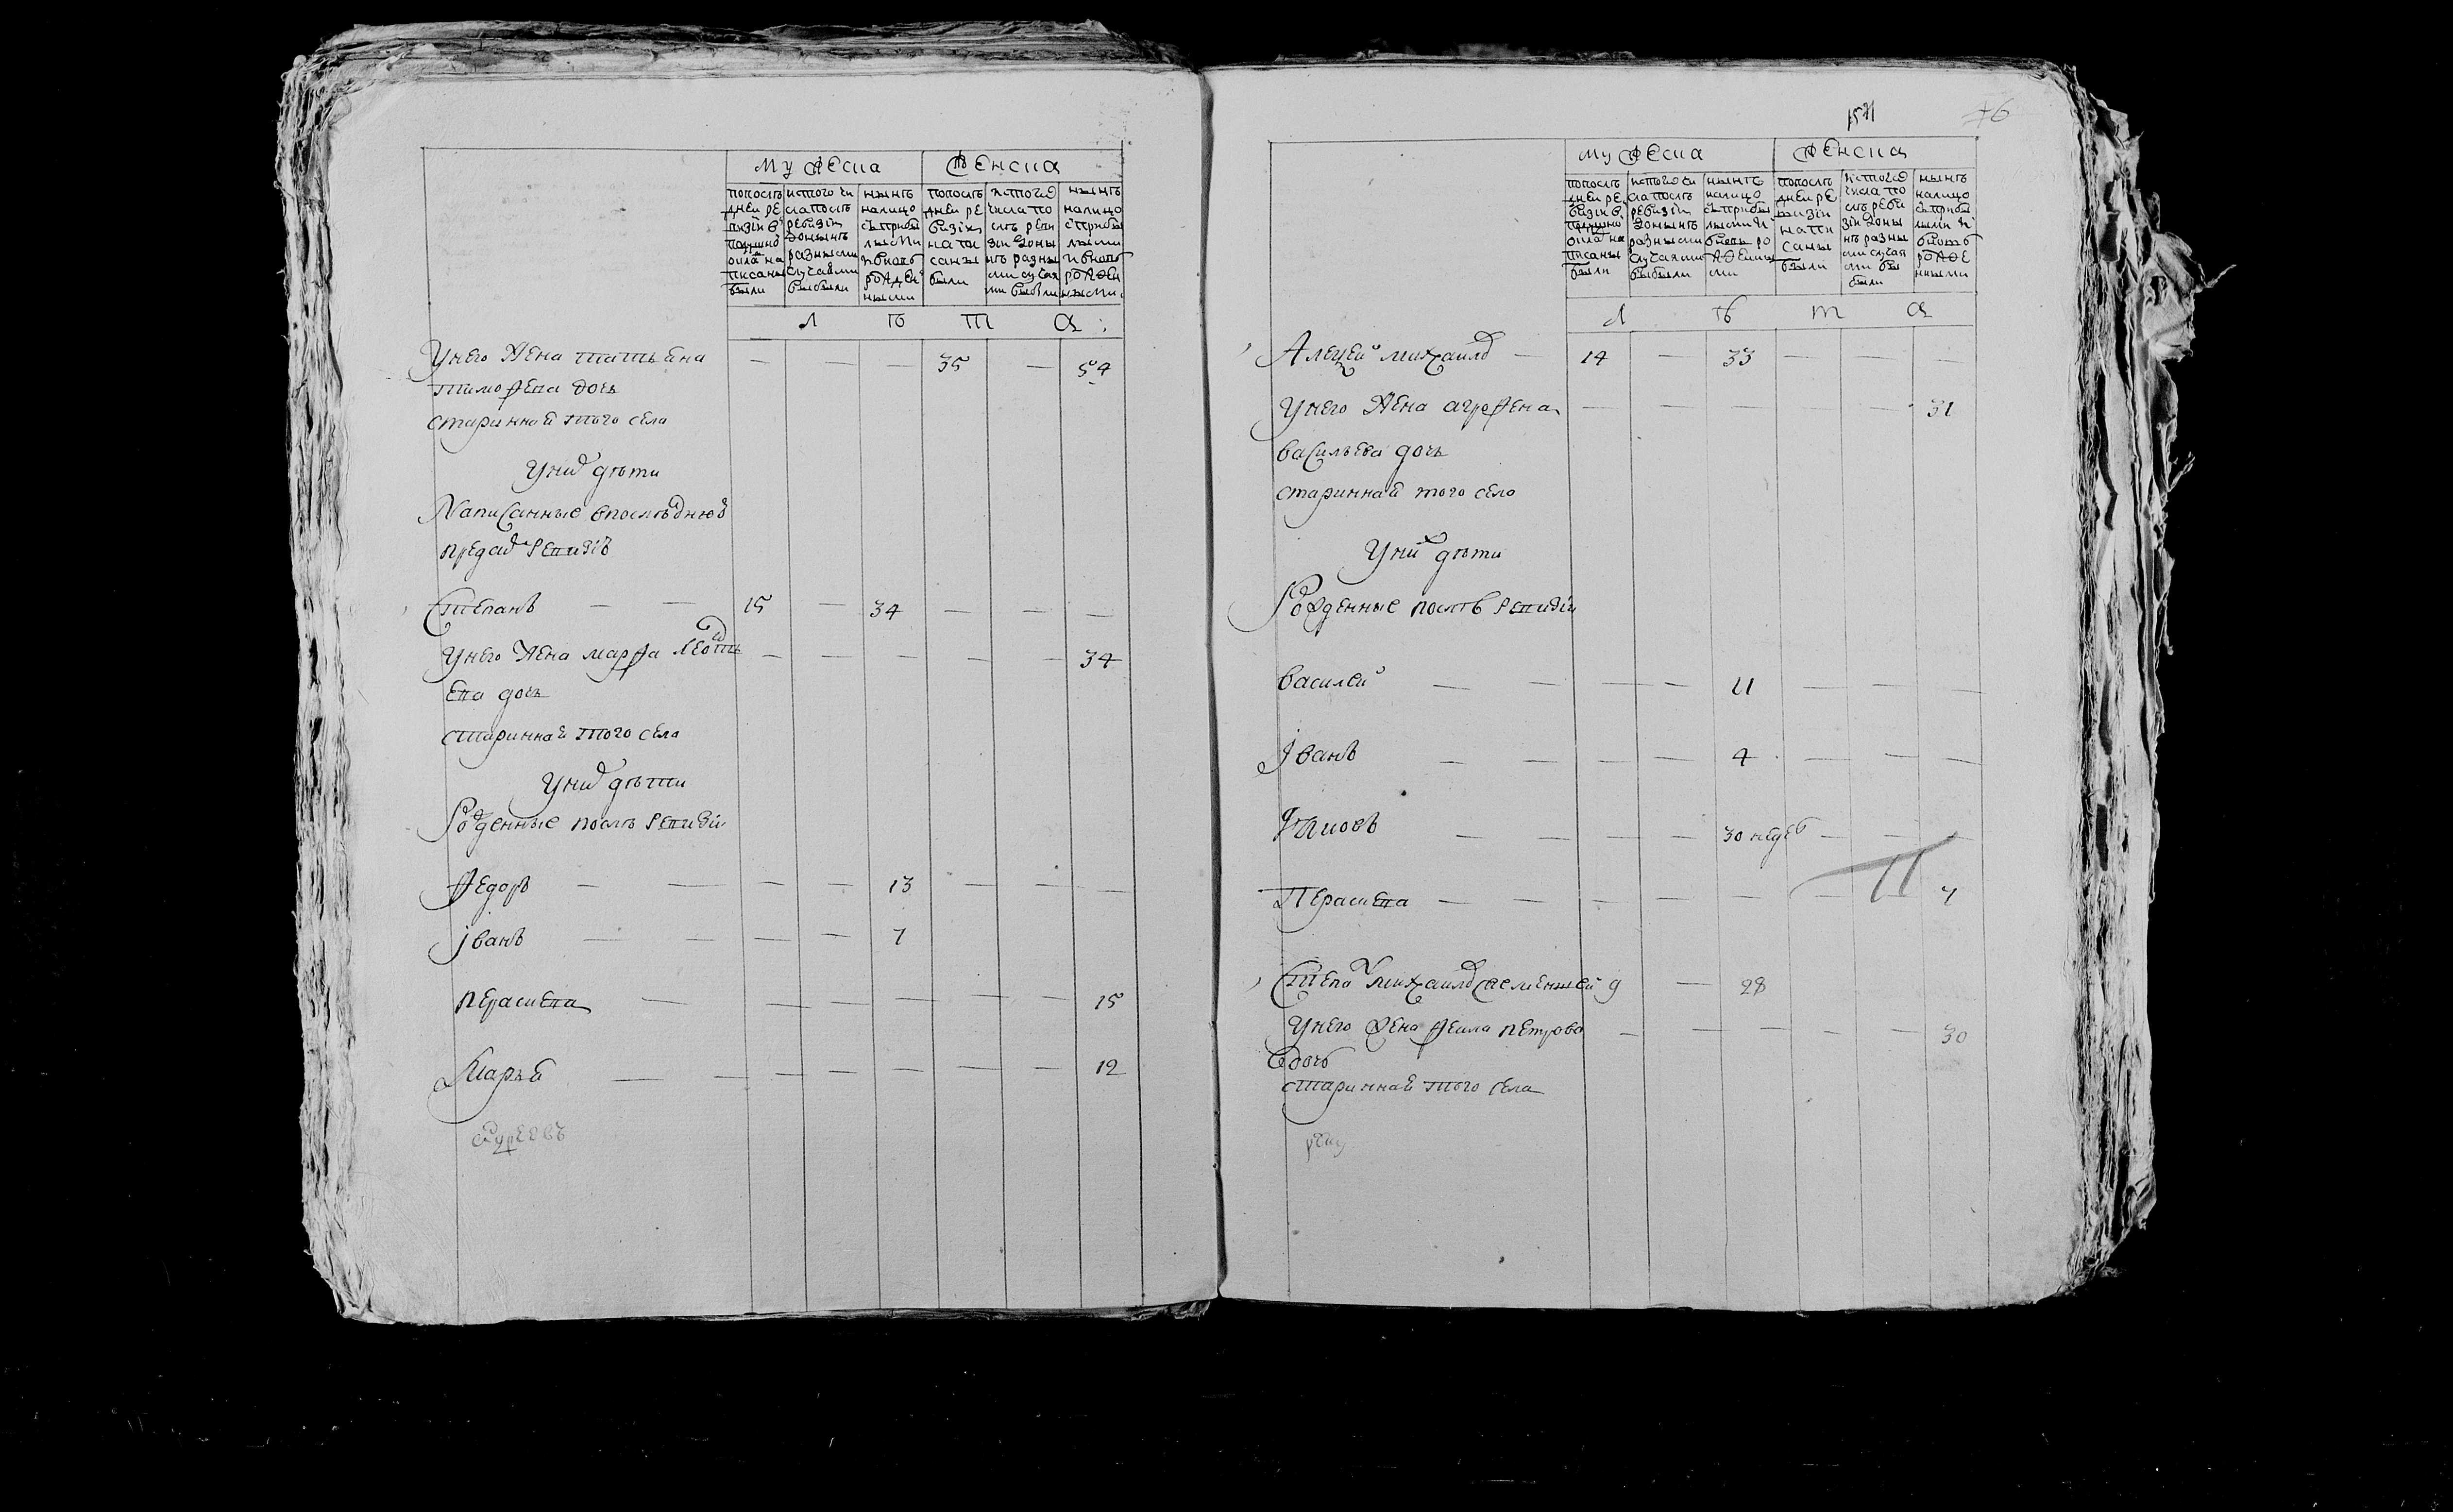 мужеска женска
попослѣ дней ре визiи в подушной окла на писаны были
ис того чи сла послѣ ревизiи донынѣ разными случаями выбыли
нынѣ налицо с прибы лыми и вновь рожден ными
попослѣ дней ре визiи на пи саны были
ис того числа по слѣ реви зiи доны нѣ разны ми случая ми выбыли
нынѣ налицо с прибы лыми и вновь рожден ными
л ѣ т а
У него жена татьяна — — — 35 — 54
тимофева дочь
стариннай того села
У них дѣти
Написанные в послѣднюю
пред сим ревизiю
Степанъ — — 15 — 34 — — —
У него жена марфа — — — — — 34
ева дочь
стариннай того села
У них дѣти
Рожденные послѣ ревизiи
Федоръ — — — — 13 — — —
Iванъ — — — — 7
прасковя — — — — — — 15
Марья — — — — — — — 12
154
76
мужеска женска
попослѣ дней ре визiи в подушной окла на писаны были
ис того чи сла послѣ ревизiи донынѣ разными случаями выбыли
нынѣ налицо с прибы лыми и вновь ро жденны ми
попослѣ дней ре визiи на пи саны были
ис того числа по слѣ реви зiи доны нѣ разны ми случая ми вы были
нынѣ налицо с прибы лыми и вновь рожде нными
л ѣ т а
Алексей михаилов — 14 — 33 — — —
У него жена агрофена — — — — — 31
васильева дочь
стариннай того села
У них дѣти
Рожденные послѣ ревизiи
василей — — — — 11 — — —
Iванъ — — — — 4 — — —
Яковъ — — — — 30 недѣль — — —
Прасковя — — — — — — — 7
Степан михаилов — 28
У него жена фекла петрова — — — — — 30
дочь
стариннай того села